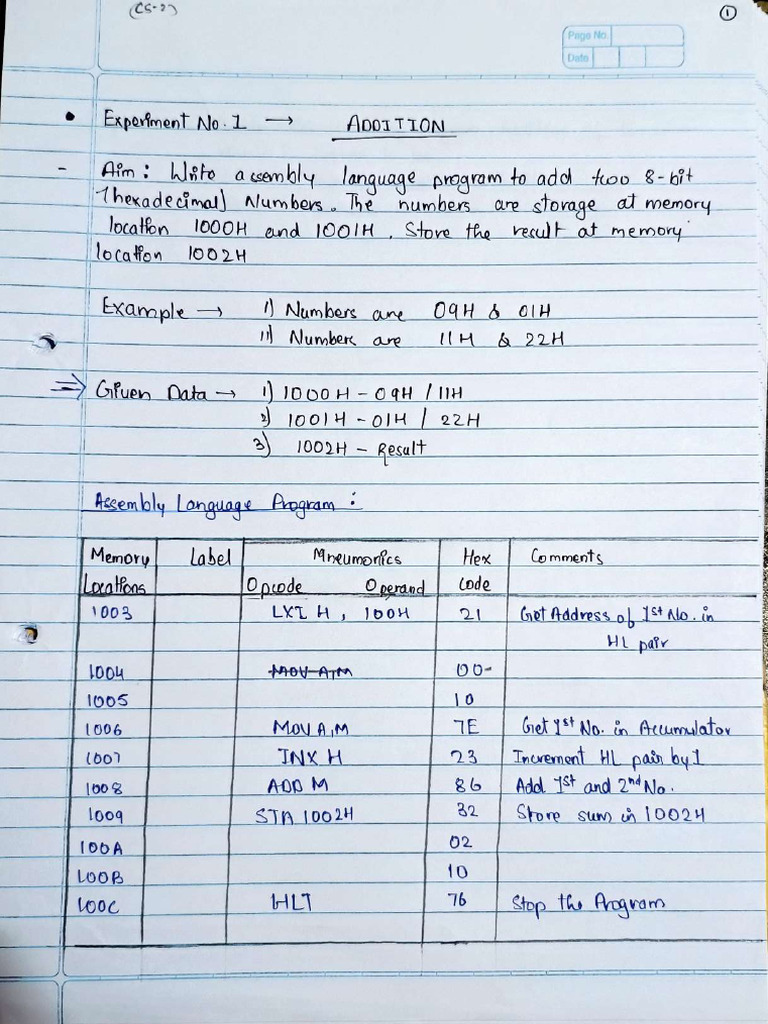 (CS-2)
1
Page No.
Date
• Experiment No. 1 → ADDITION
- Aim : Write assembly language program to add two 8-bit
(hexadecimal) Numbers. The numbers are storage at memory
location 1000H and 1001H. Store the result at memory
location 1002H
Example → i) Numbers are 09H & 01H
ii) Numbers are 11H & 22H
⇒ Given Data → 1) 1000H - 09H / 11H
2) 1001H - 01H / 22H
3) 1002H - Result
Assembly Language Program :
Memory Label Mneumonics Hex Comments
Locations Opcode Operand code
1003 LXI H, 100H 21 Get Address of 1st No. in
HL pair
1004 MOV A,M 00-
1005 10
1006 MOV A,M 7E Get 1st No. in Accumulator
1007 INX H 23 Increment HL pair by 1
1008 ADD M 86 Add 1st and 2nd No.
1009 STA 1002H 32 Store sum in 1002H
100A 02
100B 10
100C HLT 76 Stop the Program